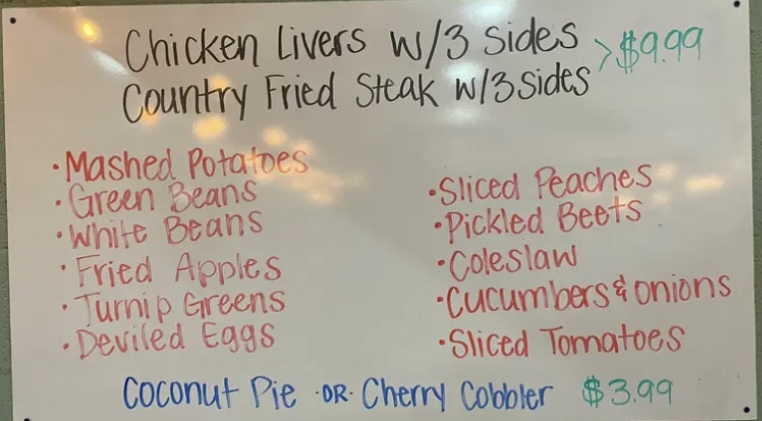 Chicken Livers w/3 sides >$9.99
Country Fried Steak w/3 sides
•Mashed Potatoes
•Green Beans
•White Beans
•Fried Apples
•Turnip Greens
•Deviled Eggs
•Sliced Peaches
•Pickled Beets
•Coleslaw
•Cucumbers & onions
•Sliced Tomatoes
Coconut Pie •OR• Cherry Cobbler $3.99